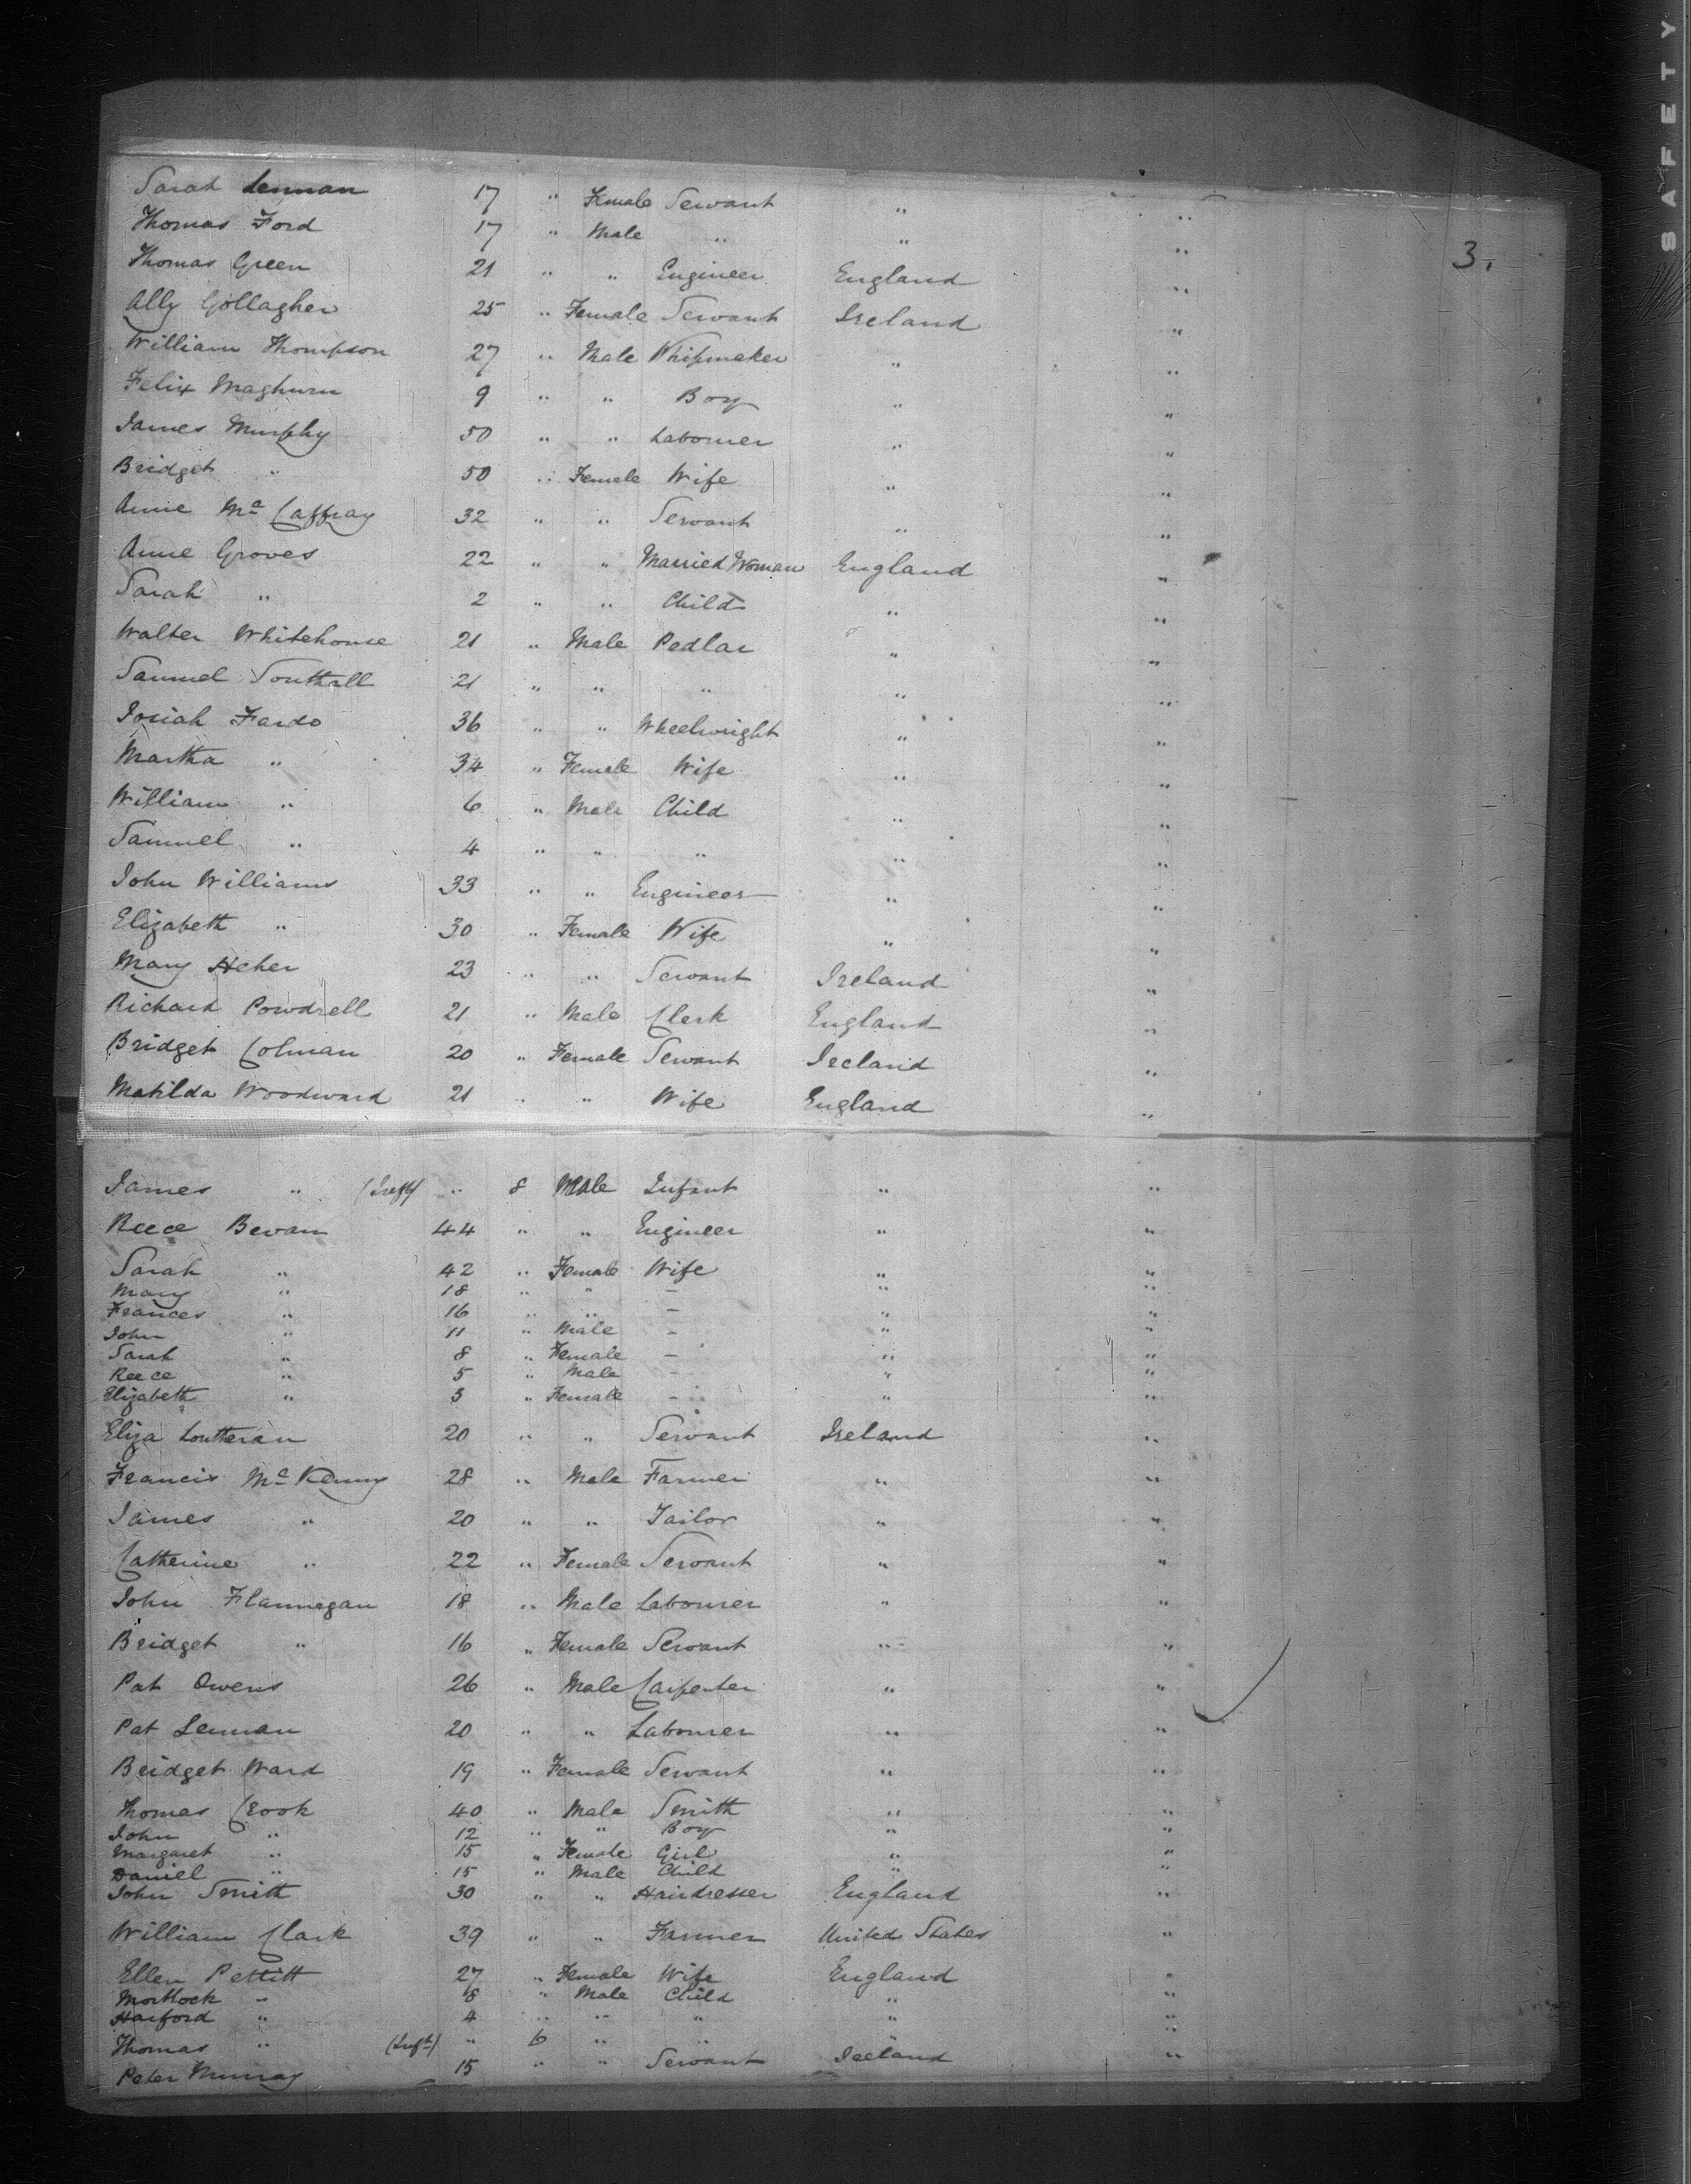 SAFETY
3.
Sarah Lennan 17 " Female Servant " "
Thomas Ford 17 " Male " " "
Thomas Green 21 " " Engineer England "
Ally Gollagher 25 " Female Servant Ireland "
William Thompson 27 " Male Whipmaker " "
Felix Maghurn 9 " " Boy " "
James Murphy 50 " " Labourer " "
Bridget " 50 " Female Wife " "
Anne Mc Caffray 32 " " Servant " "
Anne Groves 22 " " Married Woman England "
Sarah " 2 " " Child " "
Walter Whitehouse 21 " Male Pedlar " "
Samuel Southall 21 " " " " "
Josiah Fardo 36 " " Wheelwright " "
Martha " 34 " Female Wife " "
William " 6 " Male Child " "
Samuel " 4 " " " " "
John Williams 33 " " Engineer " "
Elizabeth " 30 " Female Wife " "
Mary Heher 23 " " Servant Ireland "
Richard Powdrell 21 " Male Clerk England "
Bridget Colman 20 " Female Servant Ireland "
Matilda Woodward 21 " " Wife England "
James " (Inft) " 8 Male Infant " "
Reece Bevan 44 " " Engineer " "
Sarah " 42 " Female Wife " "
Mary " 18 " " - " "
Frances " 16 " " - " "
John " 11 " Male - " "
Sarah " 8 " Female - " "
Reece " 5 " Male - " "
Elizabeth " 3 " Female - " "
Eliza Loutteran 20 " " Servant Ireland "
Francis Mc Kenny 28 " Male Farmer " "
James " 20 " " Tailor " "
Catherine " 22 " Female Servant " "
John Flannegan 18 " Male Labourer " "
Bridget " 16 " Female Servant " "
Pat Owens 26 " Male Carpenter " "
Pat Lennan 20 " " Labourer " "
Bridget Ward 19 " Female Servant " "
Thomas Crook 40 " Male Smith " "
John " 12 " " Boy " "
Margaret " 15 " Female Girl " "
Daniel " 15 " Male Child " "
John Smith 30 " " Hairdresser England "
William Clark 39 " " Farmer United States "
Ellen Pettitt 27 " Female Wife England "
Mortlock " 8 " Male Child " "
Harford " 4 " " " " "
Thomas " (Inft) " 6 " " " "
Peter Murray 15 " " Servant Ireland "